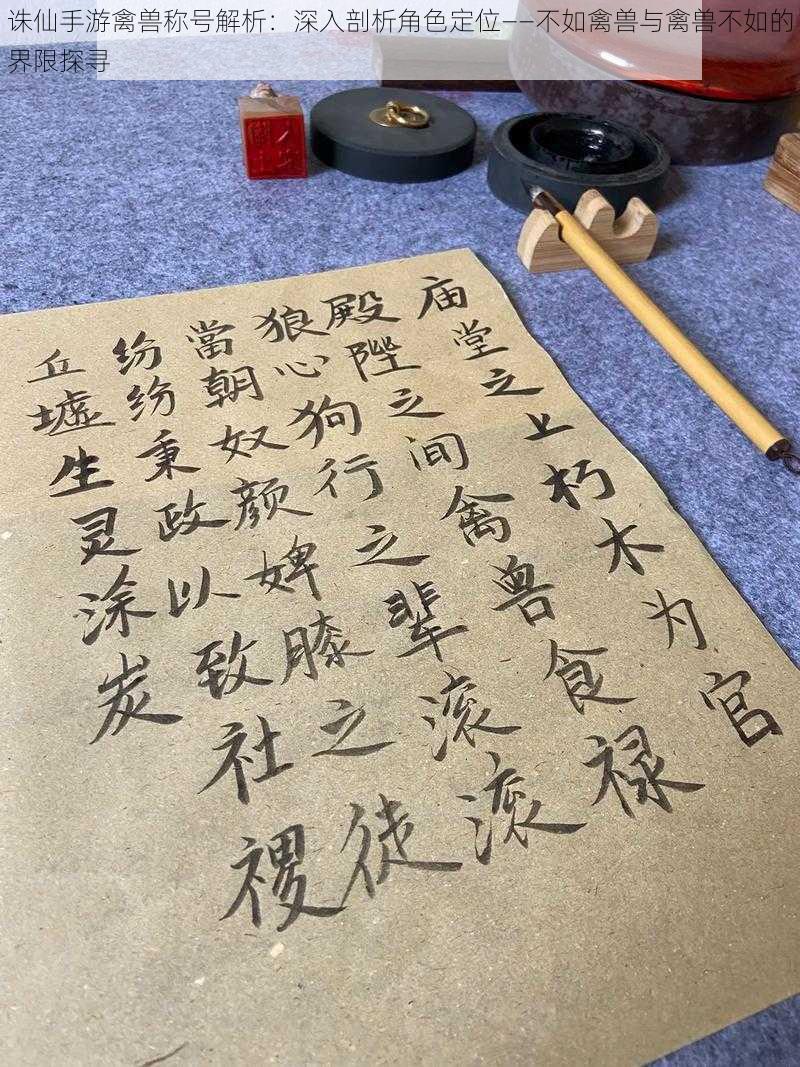 诛仙手游禽兽称号解析：深入剖析角色定位——不如禽兽与禽兽不如的
界限探寻
庙堂之上朽木为官
殿陛之间禽兽食禄
狼心狗行之辈滚滚
當朝奴颜婢膝之徒
纷纷秉政以致社稷
丘墟生灵涂炭